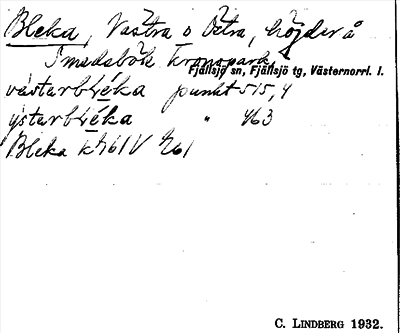 Bleka, Västra o Östra, höjder å
Imedsbök kronopark,
Fjällsjö sn, Fjällsjö tg, Västernorrl. l.
västarbléka punkt 515,4
ystarbléka " 463
Bleka
C. LINDBERG 1932.